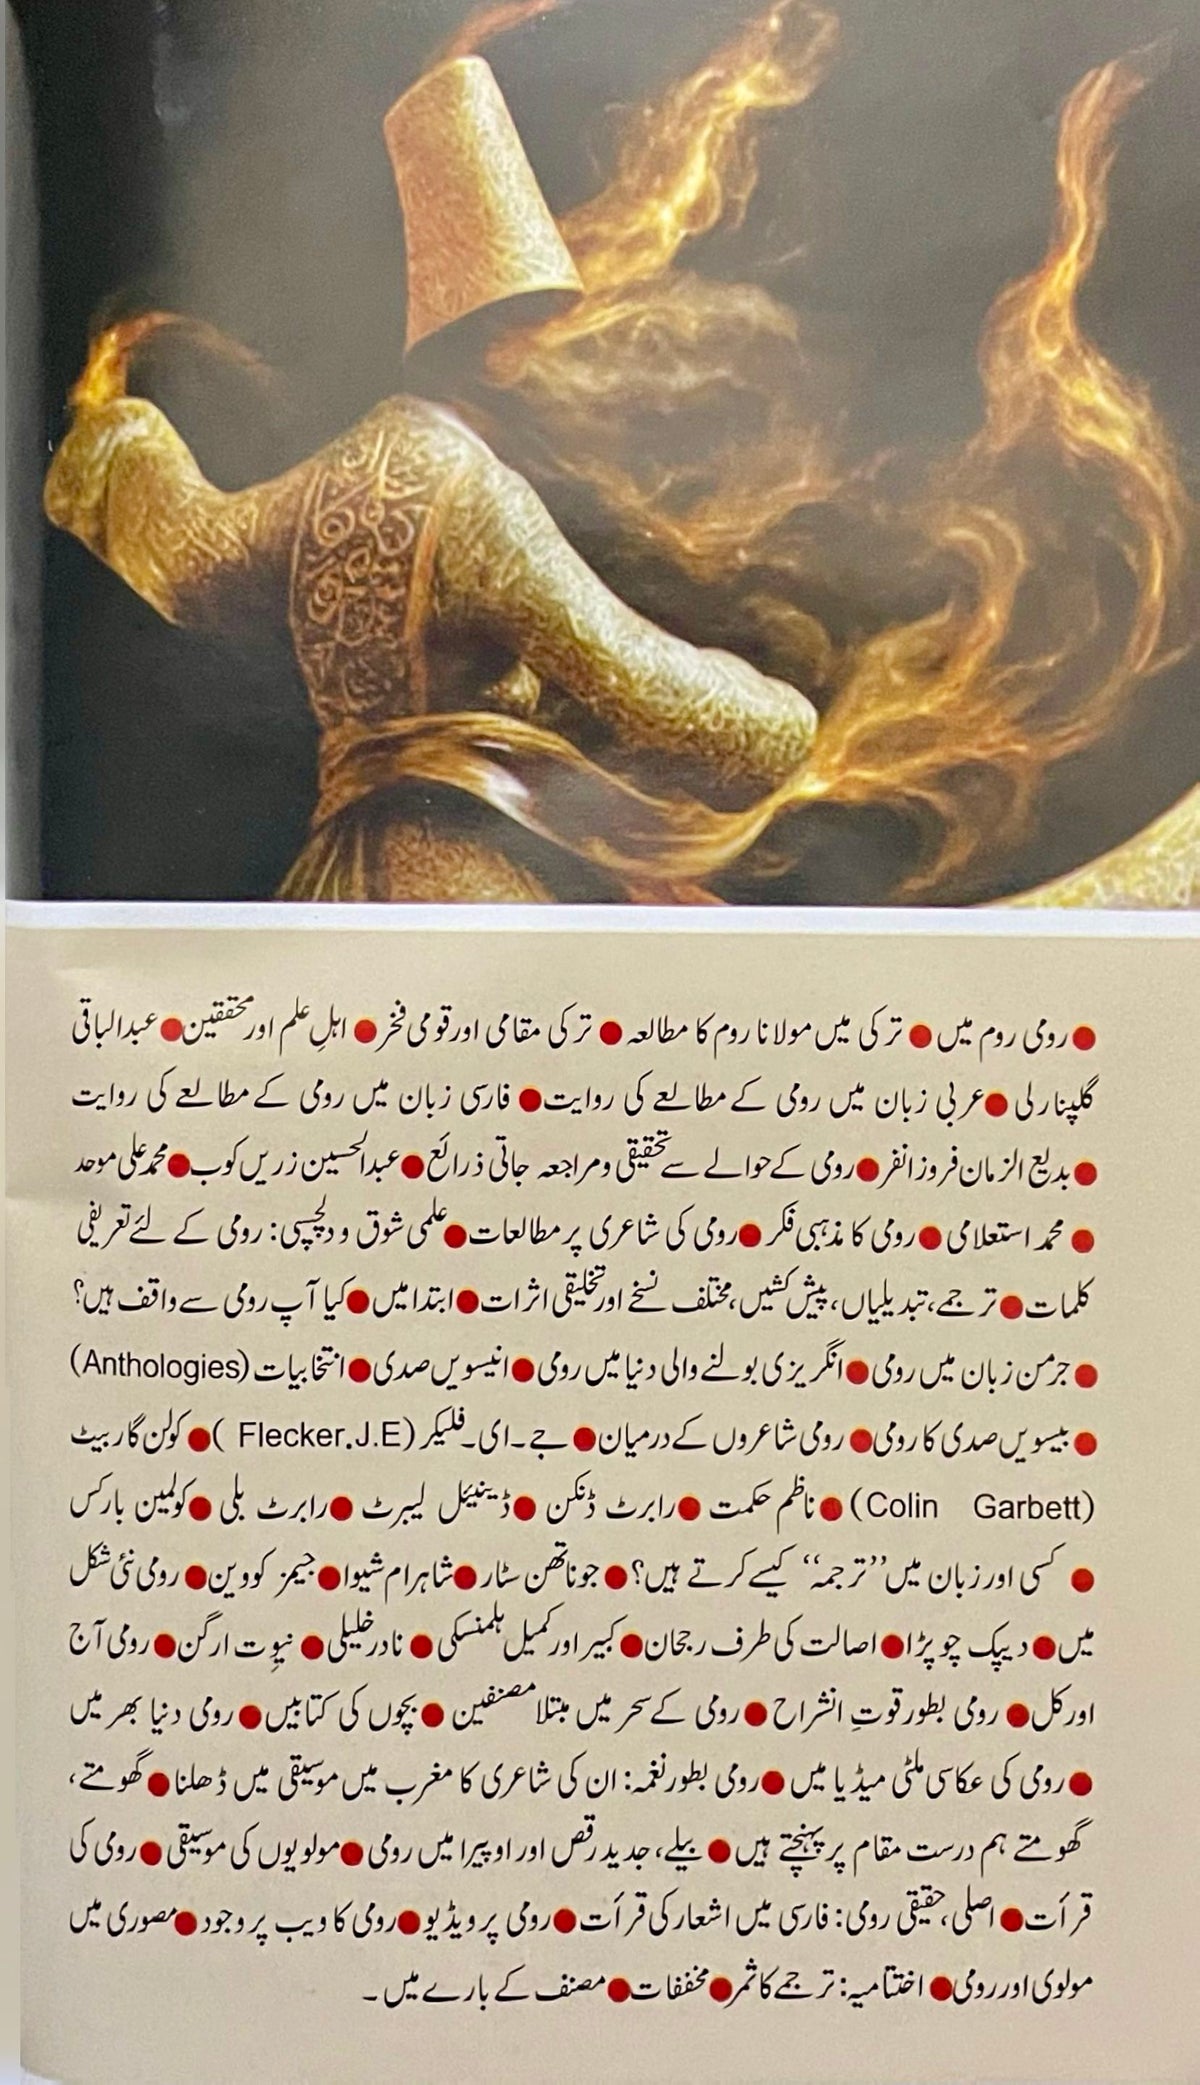 ● رومی روم میں ● ترکی میں مولانا روم کا مطالعہ ● ترکی مقامی اور قومی فخر ● اہلِ علم اور محققین ● عبدالباقی
گلپنارلی ● عربی زبان میں رومی کے مطالعے کی روایت ● فارسی زبان میں رومی کے مطالعے کی روایت
● بدیع الزمان فروز انفر ● رومی کے حوالے سے تحقیقی و مراجعہ جاتی ذرائع ● عبدالحسین زریں کوب ● محمد علی موحد
● محمد استعلامی ● رومی کا مذہبی فکر ● رومی کی شاعری پر مطالعات ● علمی شوق و دلچسپی: رومی کے لئے تعریفی
کلمات ● ترجمے، تبدیلیاں، پیش کشیں، مختلف نسخے اور تخلیقی اثرات ● ابتدا میں ● کیا آپ رومی سے واقف ہیں؟
● جرمن زبان میں رومی ● انگریزی بولنے والی دنیا میں رومی ● انیسویں صدی ● انتخابیات (Anthologies)
● بیسویں صدی کا رومی ● رومی شاعروں کے درمیان ● جے۔ای۔فلیکر (Flecker.J.E) ● کولن گاربیٹ
(Colin Garbett) ● ناظم حکمت ● رابرٹ ڈنکن ● ڈینیئل لیبرٹ ● رابرٹ بلی ● کولمین بارکس
● کسی اور زبان میں ”ترجمہ“ کیسے کرتے ہیں؟ ● جوناتھن سٹار ● شاہرام شیوا ● جیمز کووین ● رومی نئی شکل
میں ● دیپک چوپڑا ● اصالت کی طرف رجحان ● کبیر اور کمیل ہلمنسکی ● نادر خلیلی ● نیوِت ارگن ● رومی آج
اور کل ● رومی بطور قوتِ انشراح ● رومی کے سحر میں مبتلا مصنفین ● بچوں کی کتابیں ● رومی دنیا بھر میں
● رومی کی عکاسی ملٹی میڈیا میں ● رومی بطور نغمہ: ان کی شاعری کا مغرب میں موسیقی میں ڈھلنا ● گھومتے،
گھومتے ہم درست مقام پر پہنچتے ہیں ● بیلے، جدید رقص اور اوپیرا میں رومی ● مولویوں کی موسیقی ● رومی کی
قرأت ● اصلی، حقیقی رومی: فارسی میں اشعار کی قرأت ● رومی پر ویڈیو ● رومی کا ویب پر وجود ● مصوری میں
مولوی اور رومی ● اختتامیہ: ترجمے کا ثمر ● مخففات ● مصنف کے بارے میں ۔